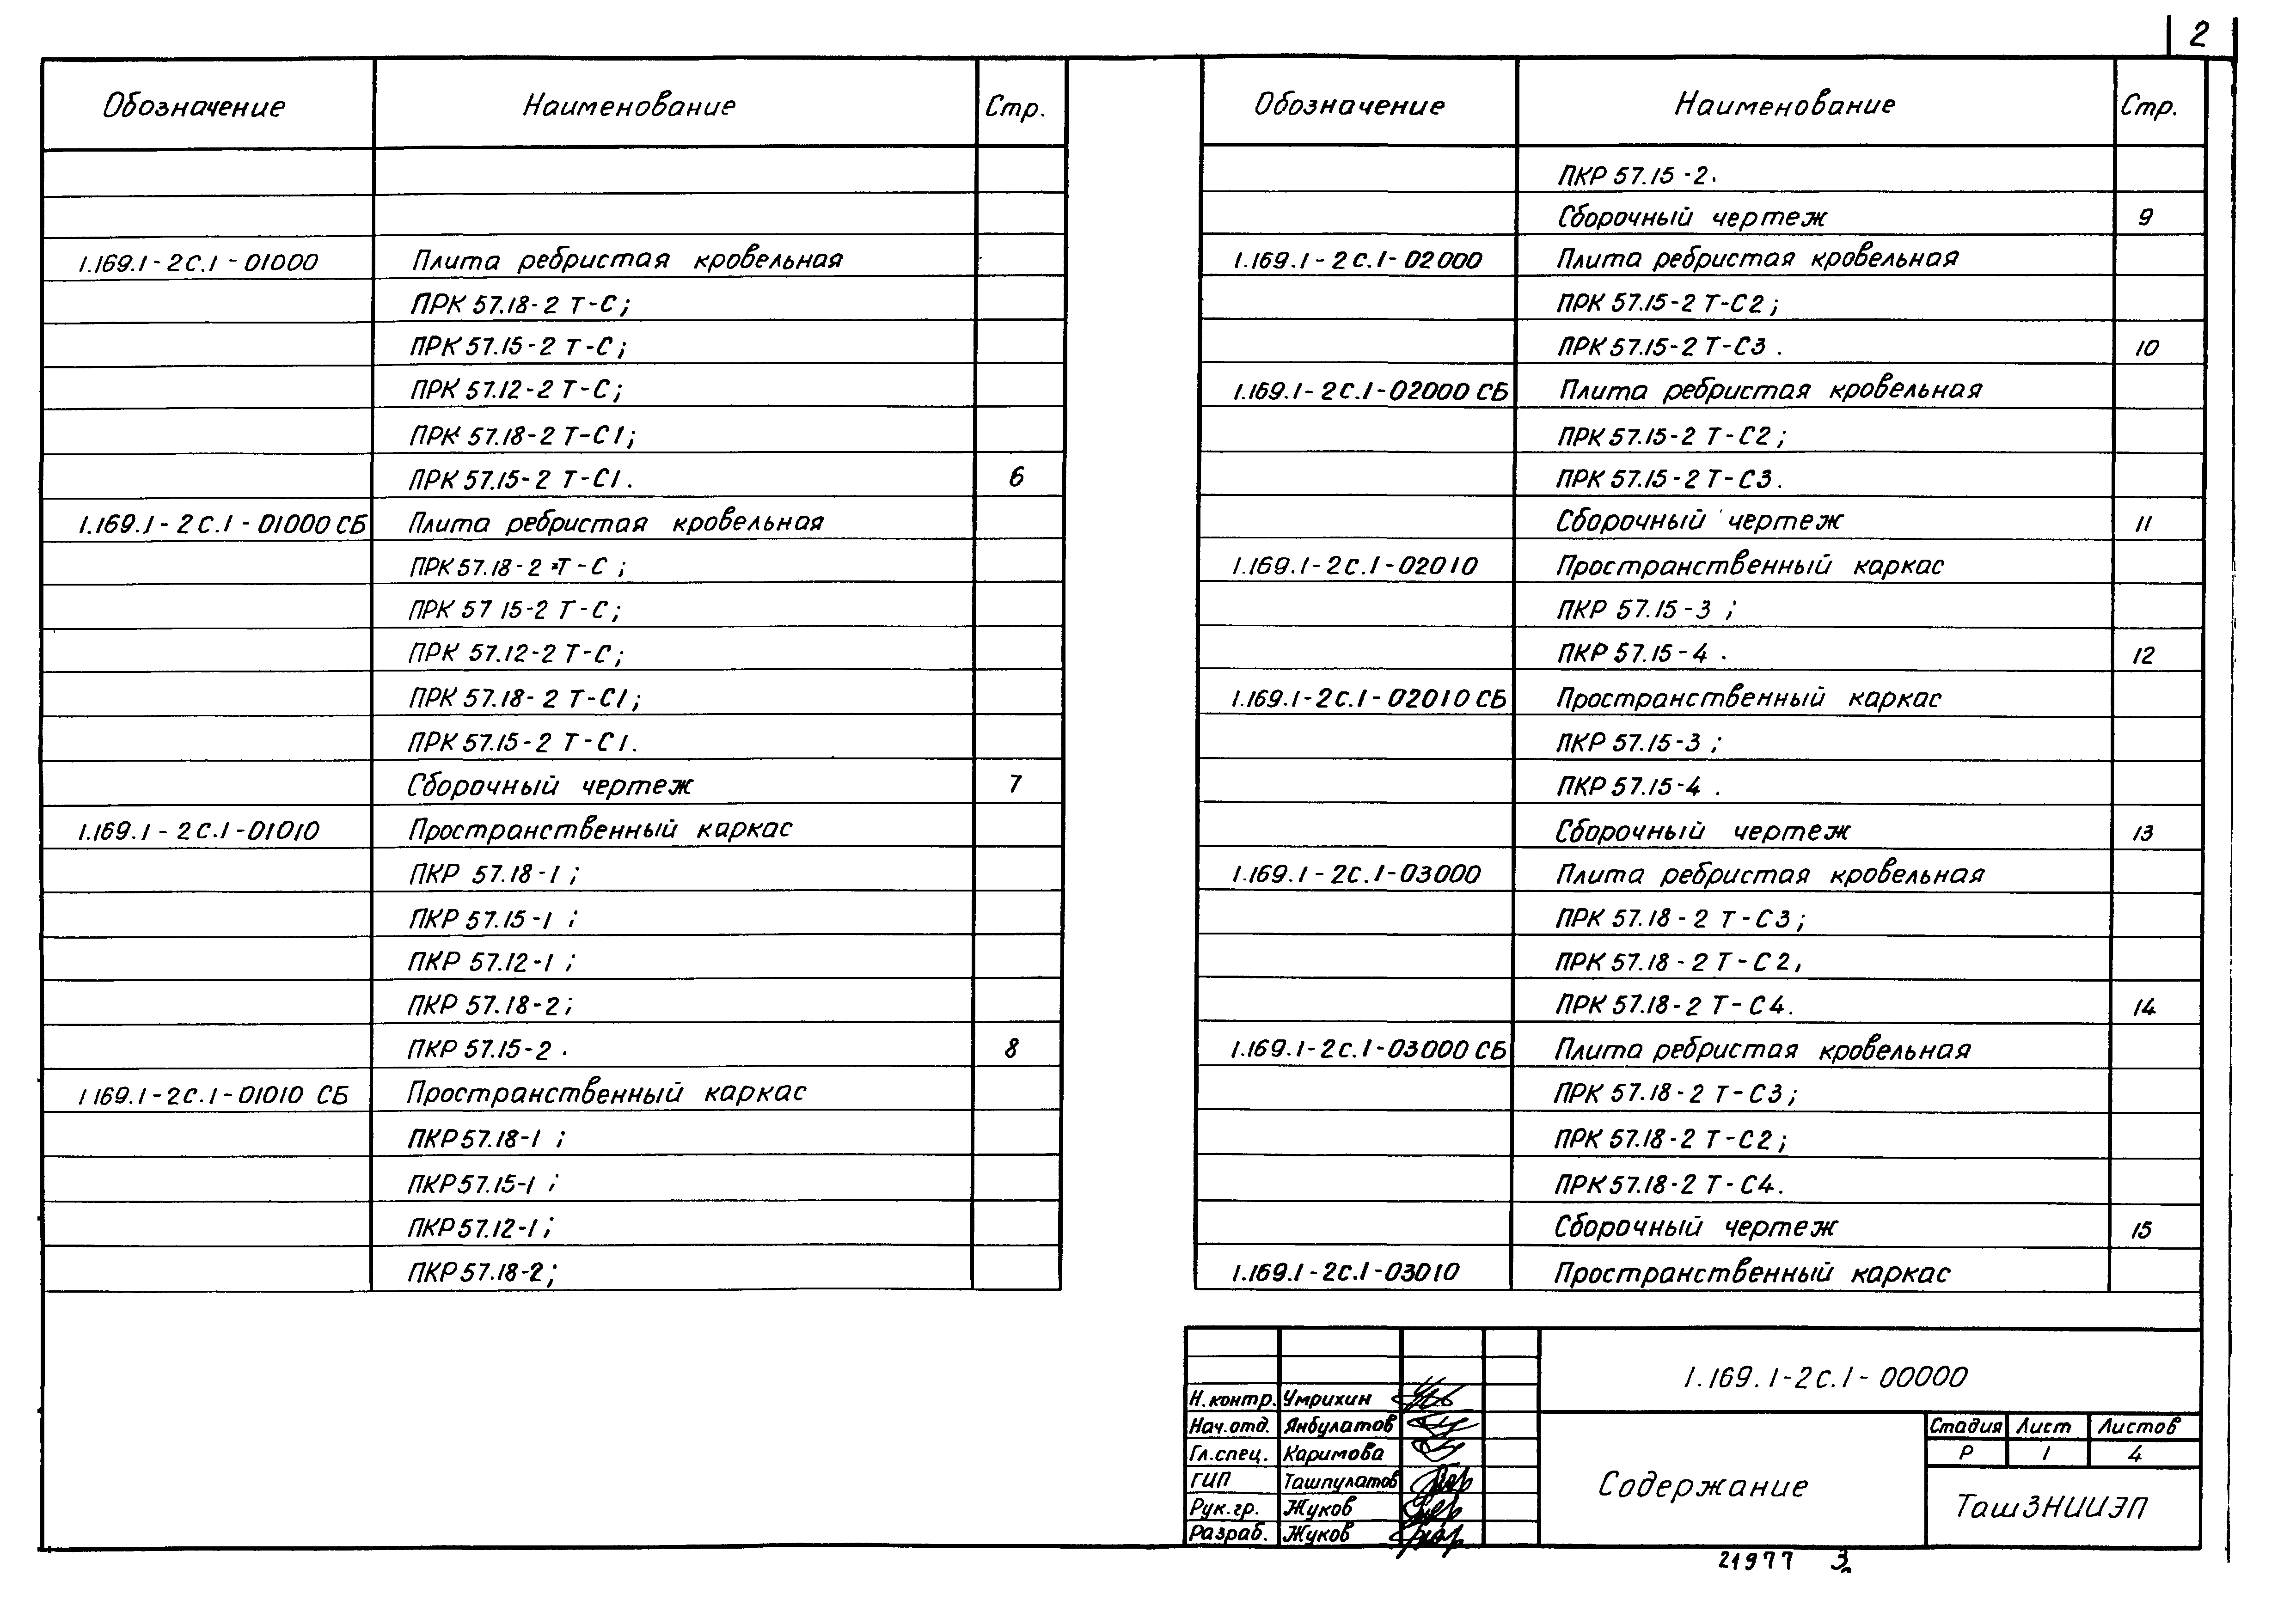 2
Обозначение Наименование Стр.
1.169.1-2с.1-01000 Плита ребристая кровельная
ПРК 57.18-2 Т-С;
ПРК 57.15-2 Т-С;
ПРК 57.12-2 Т-С;
ПРК 57.18-2 Т-С1;
ПРК 57.15-2 Т-С1. 6
1.169.1-2с.1-01000 СБ Плита ребристая кровельная
ПРК 57.18-2 Т-С;
ПРК 57 15-2 Т-С;
ПРК 57.12-2 Т-С;
ПРК 57.18-2 Т-С1;
ПРК 57.15-2 Т-С1.
Сборочный чертеж 7
1.169.1-2с.1-01010 Пространственный каркас
ПКР 57.18-1;
ПКР 57.15-1;
ПКР 57.12-1;
ПКР 57.18-2;
ПКР 57.15-2. 8
1 169.1-2с.1-01010 СБ Пространственный каркас
ПКР 57.18-1;
ПКР 57.15-1;
ПКР 57.12-1;
ПКР 57.18-2;
Обозначение Наименование Стр.
ПКР 57.15-2.
Сборочный чертеж 9
1.169.1-2с.1-02000 Плита ребристая кровельная
ПРК 57.15-2 Т-С2;
ПРК 57.15-2 Т-С3. 10
1.169.1-2с.1-02000 СБ Плита ребристая кровельная
ПРК 57.15-2 Т-С2;
ПРК 57.15-2 Т-С3.
Сборочный чертеж 11
1.169.1-2с.1-02010 Пространственный каркас
ПКР 57.15-3;
ПКР 57.15-4. 12
1.169.1-2с.1-02010 СБ Пространственный каркас
ПКР 57.15-3;
ПКР 57.15-4.
Сборочный чертеж 13
1.169.1-2с.1-03000 Плита ребристая кровельная
ПРК 57.18-2 Т-С3;
ПРК 57.18-2 Т-С2,
ПРК 57.18-2 Т-С4. 14
1.169.1-2с.1-03000 СБ Плита ребристая кровельная
ПРК 57.18-2 Т-С3;
ПРК 57.18-2 Т-С2;
ПРК 57.18-2 Т-С4.
Сборочный чертеж 15
1.169.1-2с.1-03010 Пространственный каркас
1.169.1-2с.1-00000
Н.контр. Умрихин
Нач.отд. Янбулатов
Гл.спец. Каримова
ГИП Ташпулатов
Рук.гр. Жуков
Разраб. Жуков
Содержание
Стадия Лист Листов
Р 1 4
ТашЗНИИЭП
21977 3